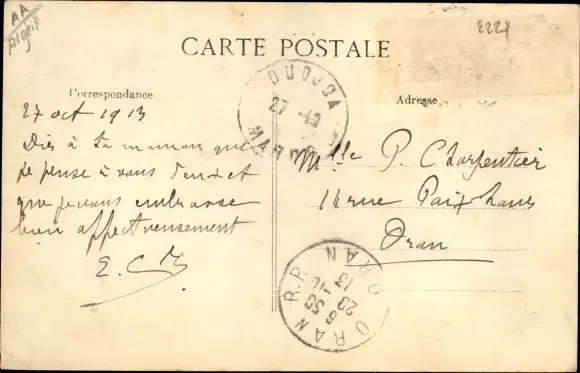 AA
Algérie
2221
CARTE POSTALE
Correspondance
Adresse
OUDJDA
27 -10
MAROC
27 oct 1913
Dis à ta maman que
je pense à vous deux et
que je vous embrasse
bien affectueusement
E. C.
Mlle P. Charpentier
14 rue Paixhans
Oran
ORAN R.P. ORAN
6 30
29 -10
13